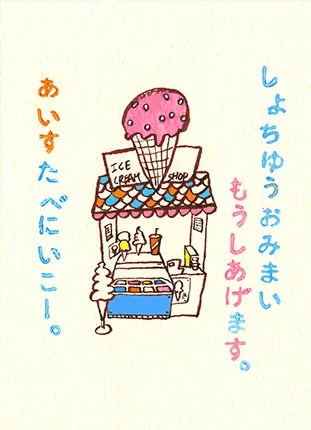 しょちゅうおみまい
もうしあげます。
ICE
CREAM SHOP
あいすたべにいこー。